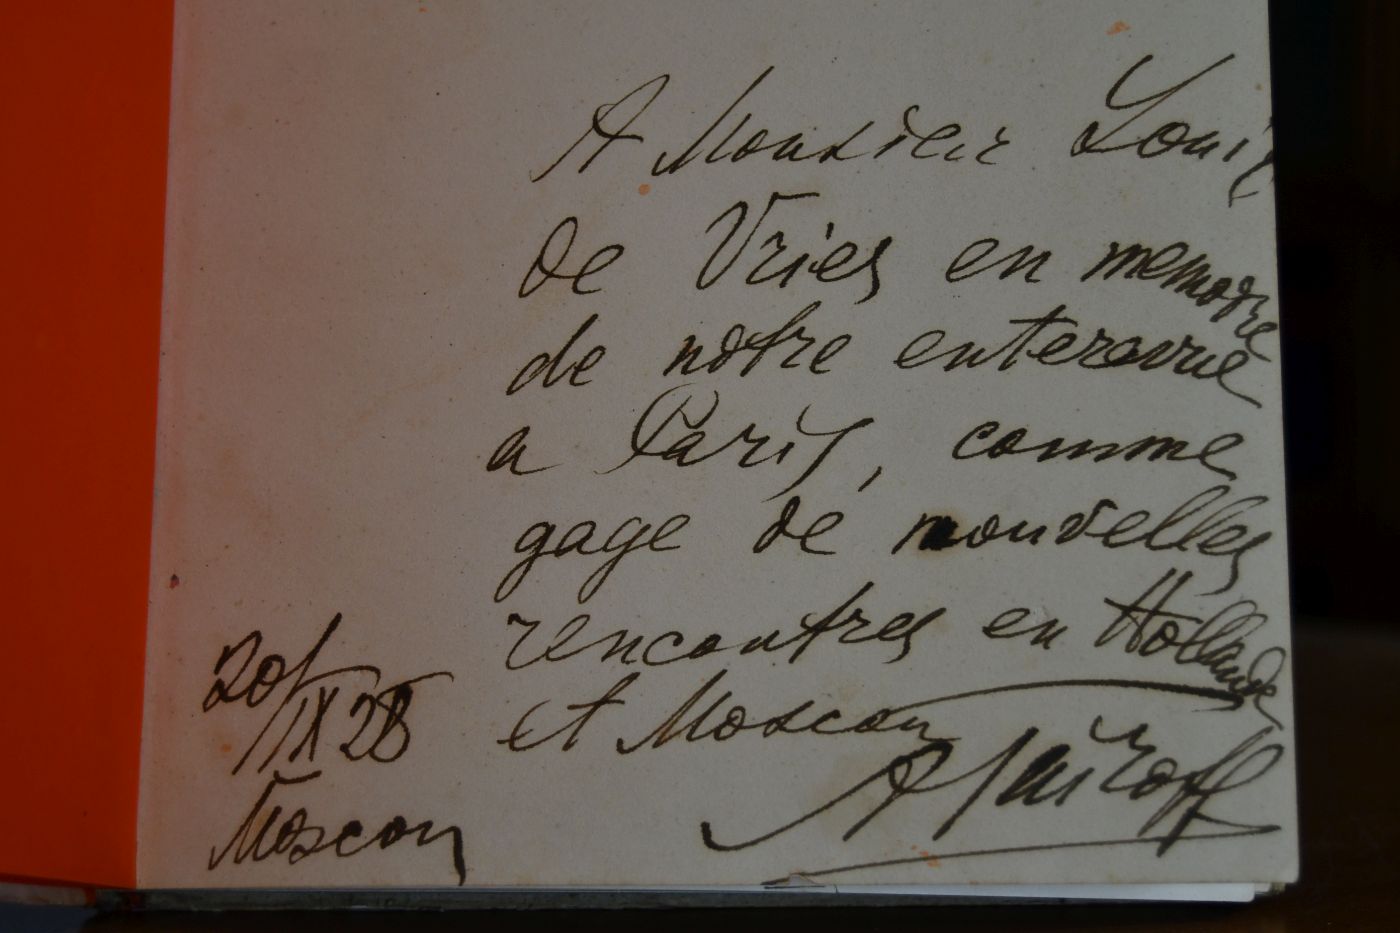 A Monsieur Louis
de Vries en memoire
de notre enterevue
a Paris, comme
gage de nouvelles
rencontres en Hollande
et Moscou
A Taïroff
20/IX 28
Moscou